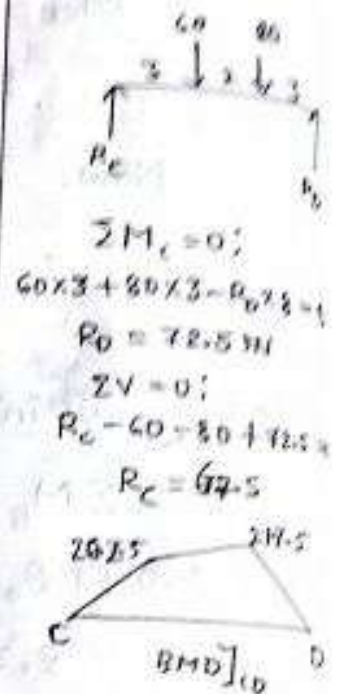 60 80
3 2 3
R_C
R_D
ΣM_c = 0;
60×3 + 80×3 - R_D×8 =
R_D = 72.5 kN
ΣV = 0;
R_c - 60 - 80 + 72.5 =
R_C = 67.5
202.5 217.5
C D
BMD]CD